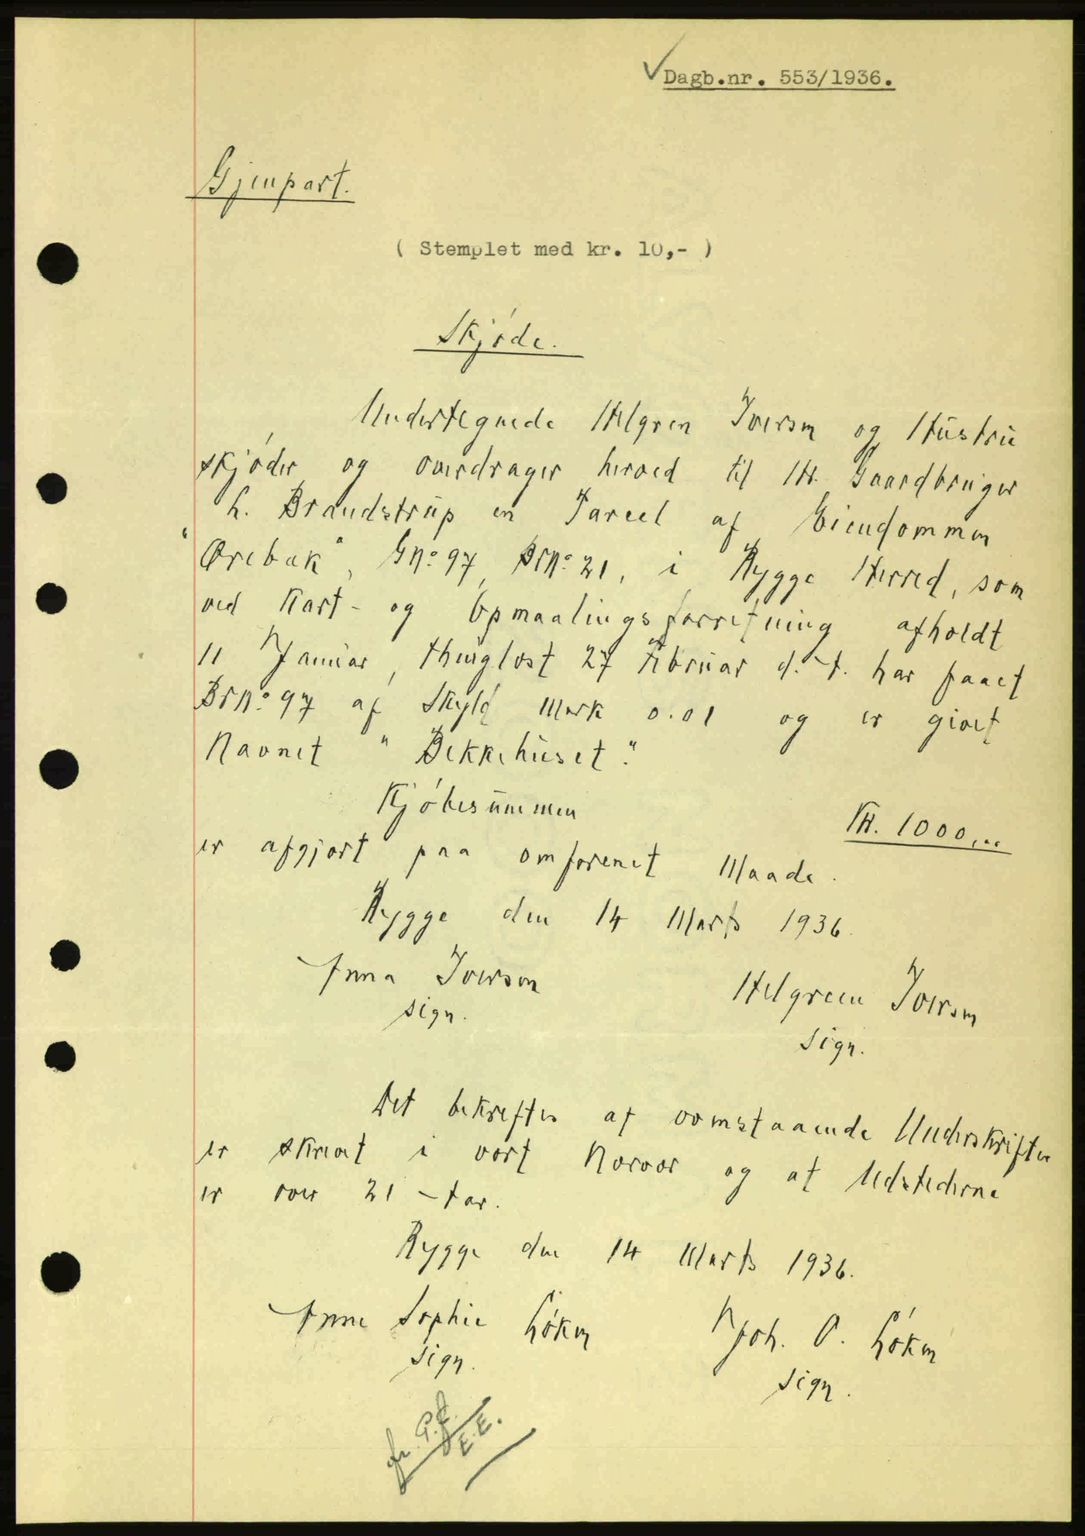 Dagb.nr. 553/1936.
Gjenpart.
( Stemplet med kr. 10,- )
Skjøde.
Undertegnede Helgren Iversen og Hustru
skjøder og overdrager herved til Hr. Gaardbruger
L. Brandstrup en Parcel af Eiendommen
"Ørebæk", Gno 97, Brno 21, i Rygge Herred, som
ved Kart- og Opmaalingsforretning afholdt
11 Januar, thinglæst 27 Februar d. A. har faaet
Brno 97 af Skyld Mark 0.01 og er givet
Navnet "Bekkehuset".
Kjøbesummen
Kr. 1000,..
er afgjort paa omforenet Maade.
Rygge den 14 Marts 1936.
Anna Iversen Helgreen Iversen
sign. sign.
Det bekreftes at ovenstaaende Underskrifter
er skrevet i vort Nærvær og at Udstederne
er over 21 Aar.
Rygge den 14 Marts 1936.
Anne Sophie Løken Joh. O. Løken
sign. sign.
E.E.